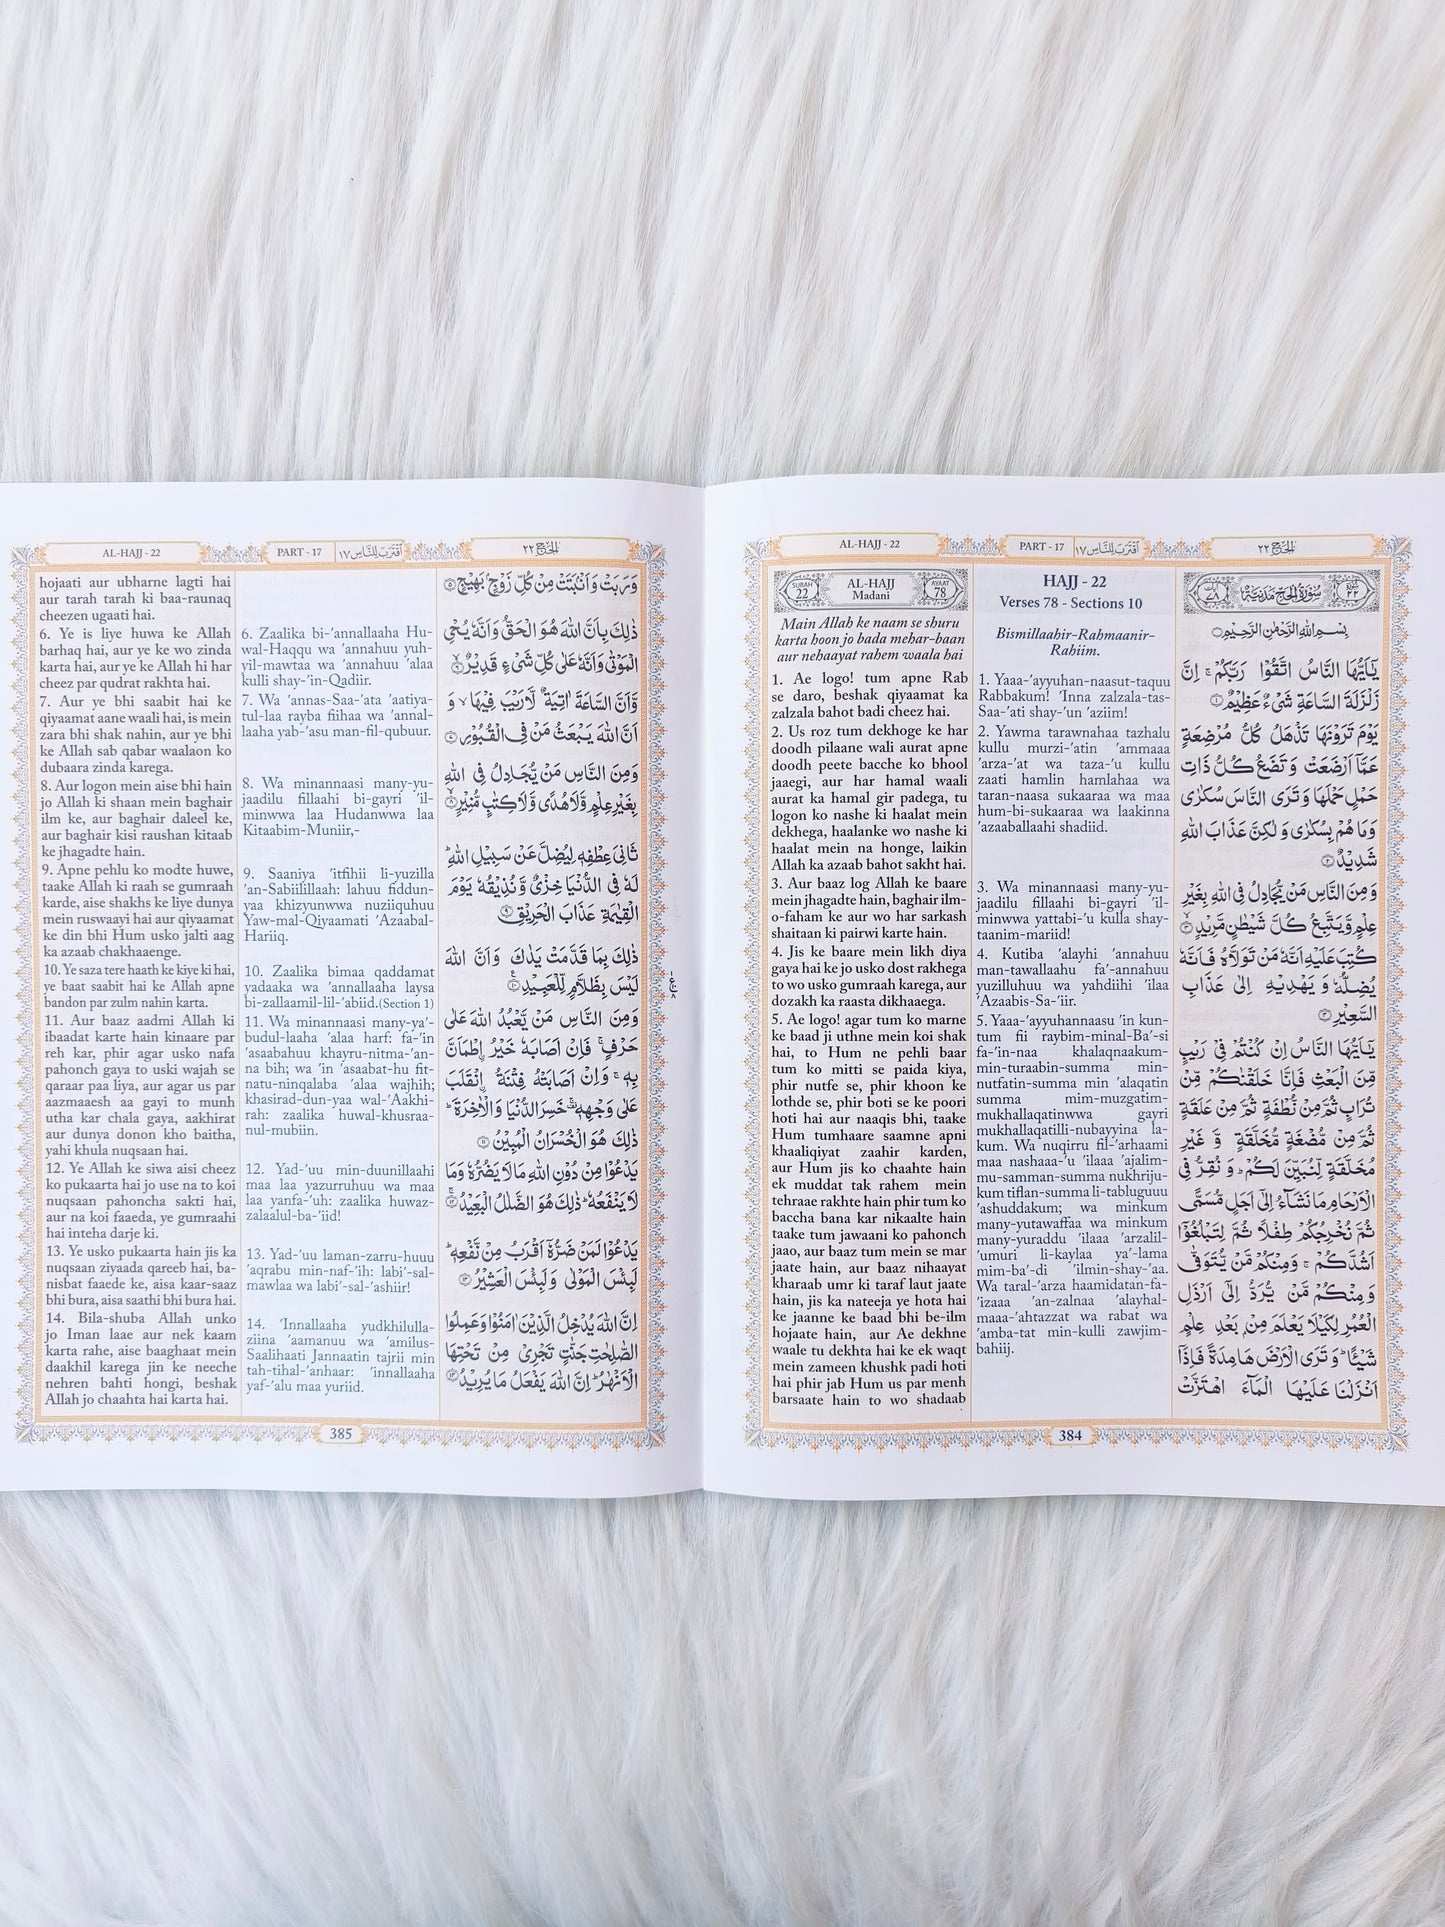 AL-HAJJ - 22
PART - 17
اقْتَرَبَ لِلنَّاسِ ١٧
الْحَجّ ٢٢
SURAH
22
AL-HAJJ
Madani
AYAAT
78
Main Allah ke naam se shuru
karta hoon jo bada mehar-baan
aur nehaayat rahem waala hai
1. Ae logo! tum apne Rab
se daro, beshak qiyaamat ka
zalzala bahot badi cheez hai.
2. Us roz tum dekhoge ke har
doodh pilaane wali aurat apne
doodh peete bacche ko bhool
jaaegi, aur har hamal waali
aurat ka hamal gir padega, tu
logon ko nashe ki haalat mein
dekhega, haalanke wo nashe ki
haalat mein na honge, laikin
Allah ka azaab bahot sakht hai.
3. Aur baaz log Allah ke baare
mein jhagadte hain, baghair ilm-
o-faham ke aur wo har sarkash
shaitaan ki pairwi karte hain.
4. Jis ke baare mein likh diya
gaya hai ke jo usko dost rakhega
to wo usko gumraah karega, aur
dozakh ka raasta dikhaaega.
5. Ae logo! agar tum ko marne
ke baad ji uthne mein koi shak
hai, to Hum ne pehli baar
tum ko mitti se paida kiya,
phir nutfe se, phir khoon ke
lothde se, phir boti se ke poori
hoti hai aur naaqis bhi, taake
Hum tumhaare saamne apni
khaaliqiyat zaahir karden,
aur Hum jis ko chaahte hain
ek muddat tak rahem mein
tehraae rakhte hain phir tum ko
baccha bana kar nikaalte hain
taake tum jawaani ko pahonch
jaao, aur baaz tum mein se mar
jaate hain, aur baaz nihaayat
kharaab umr ki taraf laut jaate
hain, jis ka nateeja ye hota hai
ke jaanne ke baad bhi be-ilm
hojaate hain, aur Ae dekhne
waale tu dekhta hai ke ek waqt
mein zameen khushk padi hoti
hai phir jab Hum us par menh
barsaate hain to wo shadaab
HAJJ - 22
Verses 78 - Sections 10
Bismillaahir-Rahmaanir-
Rahiim.
1. Yaaa-'ayyuhan-naasut-taquu
Rabbakum! 'Inna zalzala-tas-
Saa-'ati shay-'un 'aziim!
2. Yawma tarawnahaa tazhalu
kullu murzi-'atin 'ammaaa
'arza-'at wa taza-'u kullu
zaati hamlin hamlahaa wa
taran-naasa sukaaraa wa maa
hum-bi-sukaaraa wa laakinna
'azaaballaahi shadiid.
3. Wa minannaasi many-yu-
jaadilu fillaahi bi-gayri 'il-
minwwa yattabi-'u kulla shay-
taanim-mariid!
4. Kutiba 'alayhi 'annahuu
man-tawallaahu fa'-annahuu
yuzilluhuu wa yahdiihi 'ilaa
'Azaabis-Sa-'iir.
5. Yaaa-'ayyuhannaasu 'in kun-
tum fii raybim-minal-Ba'-si
fa-'in-naa khalaqnaakum-
min-turaabin-summa min-
nutfatin-summa min 'alaqatin
summa mim-muzgatim-
mukhallaqatinwwa gayri
mukhallaqatilli-nubayyina la-
kum. Wa nuqirru fil-'arhaami
maa nashaaa-'u 'ilaaa 'ajalim-
mu-samman-summa nukhriju-
kum tiflan-summa li-tabluguuu
'ashuddakum; wa minkum
many-yutawaffaa wa minkum
many-yuraddu 'ilaaa 'arzalil-
'umuri li-kaylaa ya'-lama
mim-ba'-di 'ilmin-shay-'aa.
Wa taral-'arza haamidatan-fa-
'izaaa 'an-zalnaa 'alayhal-
maaa-'ahtazzat wa rabat wa
'amba-tat min-kulli zawjim-
bahiij.
سُوْرَةُ الْحَجّ مَدَنِيَّةٌ
بِسْمِ اللهِ الرَّحْمٰنِ الرَّحِيْمِ
يٰۤاَيُّهَا النَّاسُ اتَّقُوْا رَبَّكُمْ ۚ اِنَّ
زَلْزَلَةَ السَّاعَةِ شَيْءٌ عَظِيْمٌ ١
يَوْمَ تَرَوْنَهَا تَذْهَلُ كُلُّ مُرْضِعَةٍ
عَمَّاۤ اَرْضَعَتْ وَ تَضَعُ كُلُّ ذَاتِ
حَمْلٍ حَمْلَهَا وَ تَرَى النَّاسَ سُكٰرٰى
وَمَا هُمْ بِسُكٰرٰى وَ لٰكِنَّ عَذَابَ اللهِ
شَدِيْدٌ ٢
وَمِنَ النَّاسِ مَنْ يُّجَادِلُ فِي اللهِ بِغَيْرِ
عِلْمٍ وَّ يَتَّبِعُ كُلَّ شَيْطٰنٍ مَّرِيْدٍ ٣
كُتِبَ عَلَيْهِ اَنَّهٗ مَنْ تَوَلَّاهُ فَاَنَّهٗ
يُضِلُّهٗ وَ يَهْدِيْهِ اِلٰى عَذَابِ
السَّعِيْرِ ٤
يٰۤاَيُّهَا النَّاسُ اِنْ كُنْتُمْ فِيْ رَيْبٍ
مِّنَ الْبَعْثِ فَاِنَّا خَلَقْنٰكُمْ مِّنْ
تُرَابٍ ثُمَّ مِنْ نُّطْفَةٍ ثُمَّ مِنْ عَلَقَةٍ
ثُمَّ مِنْ مُّضْغَةٍ مُّخَلَّقَةٍ وَّ غَيْرِ
مُخَلَّقَةٍ لِّنُبَيِّنَ لَكُمْ ؕ وَ نُقِرُّ فِى
الْاَرْحَامِ مَا نَشَآءُ اِلٰۤى اَجَلٍ مُّسَمًّى
ثُمَّ نُخْرِجُكُمْ طِفْلًا ثُمَّ لِتَبْلُغُوْۤا
اَشُدَّكُمْ ۚ وَمِنْكُمْ مَّنْ يُّتَوَفّٰى
وَمِنْكُمْ مَّنْ يُّرَدُّ اِلٰۤى اَرْذَلِ
الْعُمُرِ لِكَيْلَا يَعْلَمَ مِنْۢ بَعْدِ عِلْمٍ
شَيْـًٔا ؕ وَ تَرَى الْاَرْضَ هَامِدَةً فَاِذَاۤ
اَنْزَلْنَا عَلَيْهَا الْمَآءَ اهْتَزَّتْ
384
AL-HAJJ - 22
PART - 17
اقْتَرَبَ لِلنَّاسِ ١٧
الْحَجّ ٢٢
hojaati aur ubharne lagti hai
aur tarah tarah ki baa-raunaq
cheezen ugaati hai.
6. Ye is liye huwa ke Allah
barhaq hai, aur ye ke wo zinda
karta hai, aur ye ke Allah hi har
cheez par qudrat rakhta hai.
7. Aur ye bhi saabit hai ke
qiyaamat aane waali hai, is mein
zara bhi shak nahin, aur ye bhi
ke Allah sab qabar waalaon ko
dubaara zinda karega.
8. Aur logon mein aise bhi hain
jo Allah ki shaan mein baghair
ilm ke, aur baghair daleel ke,
aur baghair kisi raushan kitaab
ke jhagadte hain.
9. Apne pehlu ko modte huwe,
taake Allah ki raah se gumraah
karde, aise shakhs ke liye dunya
mein ruswaayi hai aur qiyaamat
ke din bhi Hum usko jalti aag
ka azaab chakhaaenge.
10. Ye saza tere haath ke kiye ki hai,
ye baat saabit hai ke Allah apne
bandon par zulm nahin karta.
11. Aur baaz aadmi Allah ki
ibaadat karte hain kinaare par
reh kar, phir agar usko nafa
pahonch gaya to uski wajah se
qaraar paa liya, aur agar us par
aazmaaesh aa gayi to munh
utha kar chala gaya, aakhirat
aur dunya donon kho baitha,
yahi khula nuqsaan hai.
12. Ye Allah ke siwa aisi cheez
ko pukaarta hai jo use na to koi
nuqsaan pahoncha sakti hai,
aur na koi faaeda, ye gumraahi
hai inteha darje ki.
13. Ye usko pukaarta hain jis ka
nuqsaan ziyaada qareeb hai, ba-
nisbat faaede ke, aisa kaar-saaz
bhi bura, aisa saathi bhi bura hai.
14. Bila-shuba Allah unko
jo Iman laae aur nek kaam
karta rahe, aise baaghaat mein
daakhil karega jin ke neeche
nehren bahti hongi, beshak
Allah jo chaahta hai karta hai.
6. Zaalika bi-'annallaaha Hu-
wal-Haqqu wa 'annahuu yuh-
yil-mawtaa wa 'annahuu 'alaa
kulli shay-'in-Qadiir.
7. Wa 'annas-Saa-'ata 'aatiya-
tul-laa rayba fiihaa wa 'annal-
laaha yab-'asu man-fil-qubuur.
8. Wa minannaasi many-yu-
jaadilu fillaahi bi-gayri 'il-
minwwa laa Hudanwwa laa
Kitaabim-Muniir,-
9. Saaniya 'itfihii li-yuzilla
'an-Sabiilillaah: lahuu fiddun-
yaa khizyunwwa nuziiquhuu
Yaw-mal-Qiyaamati 'Azaabal-
Hariiq.
10. Zaalika bimaa qaddamat
yadaaka wa 'annallaaha laysa
bi-zallaamil-lil-'abiid.(Section 1)
11. Wa minannaasi many-ya'-
budul-laaha 'alaa harf: fa-'in
'asaabahuu khayru-nitma-'an-
na bih; wa 'in 'asaabat-hu fit-
natu-ninqalaba 'alaa wajhih;
khasirad-dun-yaa wal-'Aakhi-
rah: zaalika huwal-khusraa-
nul-mubiin.
12. Yad-'uu min-duunillaahi
maa laa yazurruhuu wa maa
laa yanfa-'uh: zaalika huwaz-
zalaalul-ba-'iid!
13. Yad-'uu laman-zarru-huuu
'aqrabu min-naf-'ih: labi'-sal-
mawlaa wa labi'-sal-'ashiir!
14. 'Innallaaha yudkhilulla-
ziina 'aamanuu wa 'amilus-
Saalihaati Jannaatin tajrii min
tah-tihal-'anhaar: 'innallaaha
yaf-'alu maa yuriid.
وَرَبَتْ وَاَنْۢبَتَتْ مِنْ كُلِّ زَوْجٍۭ بَهِيْجٍ ٥
ذٰلِكَ بِاَنَّ اللهَ هُوَ الْحَقُّ وَاَنَّهٗ يُحْيِ
الْمَوْتٰى وَاَنَّهٗ عَلٰى كُلِّ شَيْءٍ قَدِيْرٌ ٦
وَّاَنَّ السَّاعَةَ اٰتِيَةٌ لَّا رَيْبَ فِيْهَا ۙ وَ
اَنَّ اللهَ يَبْعَثُ مَنْ فِي الْقُبُوْرِ ٧
وَمِنَ النَّاسِ مَنْ يُّجَادِلُ فِي اللهِ
بِغَيْرِ عِلْمٍ وَّلَا هُدًى وَّلَا كِتٰبٍ مُّنِيْرٍ ٨
ثَانِيَ عِطْفِهٖ لِيُضِلَّ عَنْ سَبِيْلِ اللهِ ؕ
لَهٗ فِي الدُّنْيَا خِزْيٌ وَّنُذِيْقُهٗ يَوْمَ
الْقِيٰمَةِ عَذَابَ الْحَرِيْقِ ٩
ذٰلِكَ بِمَا قَدَّمَتْ يَدٰكَ وَاَنَّ اللهَ
لَيْسَ بِظَلَّامٍ لِّلْعَبِيْدِ ١٠
وَمِنَ النَّاسِ مَنْ يَّعْبُدُ اللهَ عَلٰى
حَرْفٍ ۚ فَاِنْ اَصَابَهٗ خَيْرُ ۨاطْمَاَنَّ
بِهٖ ۚ وَاِنْ اَصَابَتْهُ فِتْنَةُ ۨانْقَلَبَ
عَلٰى وَجْهِهٖ ۚ خَسِرَ الدُّنْيَا وَالْاٰخِرَةَ ؕ
ذٰلِكَ هُوَ الْخُسْرَانُ الْمُبِيْنُ ١١
يَدْعُوْا مِنْ دُوْنِ اللهِ مَا لَا يَضُرُّهٗ وَمَا
لَا يَنْفَعُهٗ ؕ ذٰلِكَ هُوَ الضَّلٰلُ الْبَعِيْدُ ١٢
يَدْعُوْا لَمَنْ ضَرُّهٗۤ اَقْرَبُ مِنْ نَّفْعِهٖ ؕ
لَبِئْسَ الْمَوْلٰى وَلَبِئْسَ الْعَشِيْرُ ١٣
اِنَّ اللهَ يُدْخِلُ الَّذِيْنَ اٰمَنُوْا وَعَمِلُوا
الصّٰلِحٰتِ جَنّٰتٍ تَجْرِيْ مِنْ تَحْتِهَا
الْاَنْهٰرُ ؕ اِنَّ اللهَ يَفْعَلُ مَا يُرِيْدُ ١٤
385